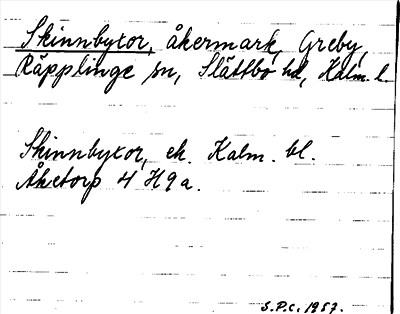 Skinnbytor, åkermark, Greby,
Räpplinge sn, Slättbo hd, Kalm. l.
Skinnbytor, ek. Kalm. bl.
Åketorp 4 H 9 a.
S.P.C. 1957.